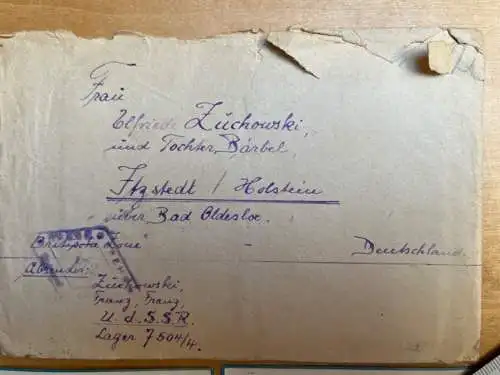 Frau
Elfriede Zuchowski,
und Tochter Bärbel,
Itzstedt / Holstein
über Bad Oldesloe.
Zone" - Deutschland.
Absender:
Zuchowski,
Franz, Franz,
U. d. S. S. R.
Lager 7504/4.